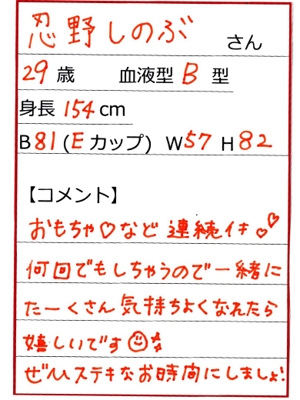 忍野しのぶ さん
29 歳 血液型 B 型
身長 154 cm
B 81 (E カップ) W57 H 82
【コメント】
おもちゃ♡など 連続イキ♡♡
何回でもしちゃうので一緒に
たーくさん 気持ちよくなれたら
嬉しいです☺
ぜひステキなお時間にしましょ!